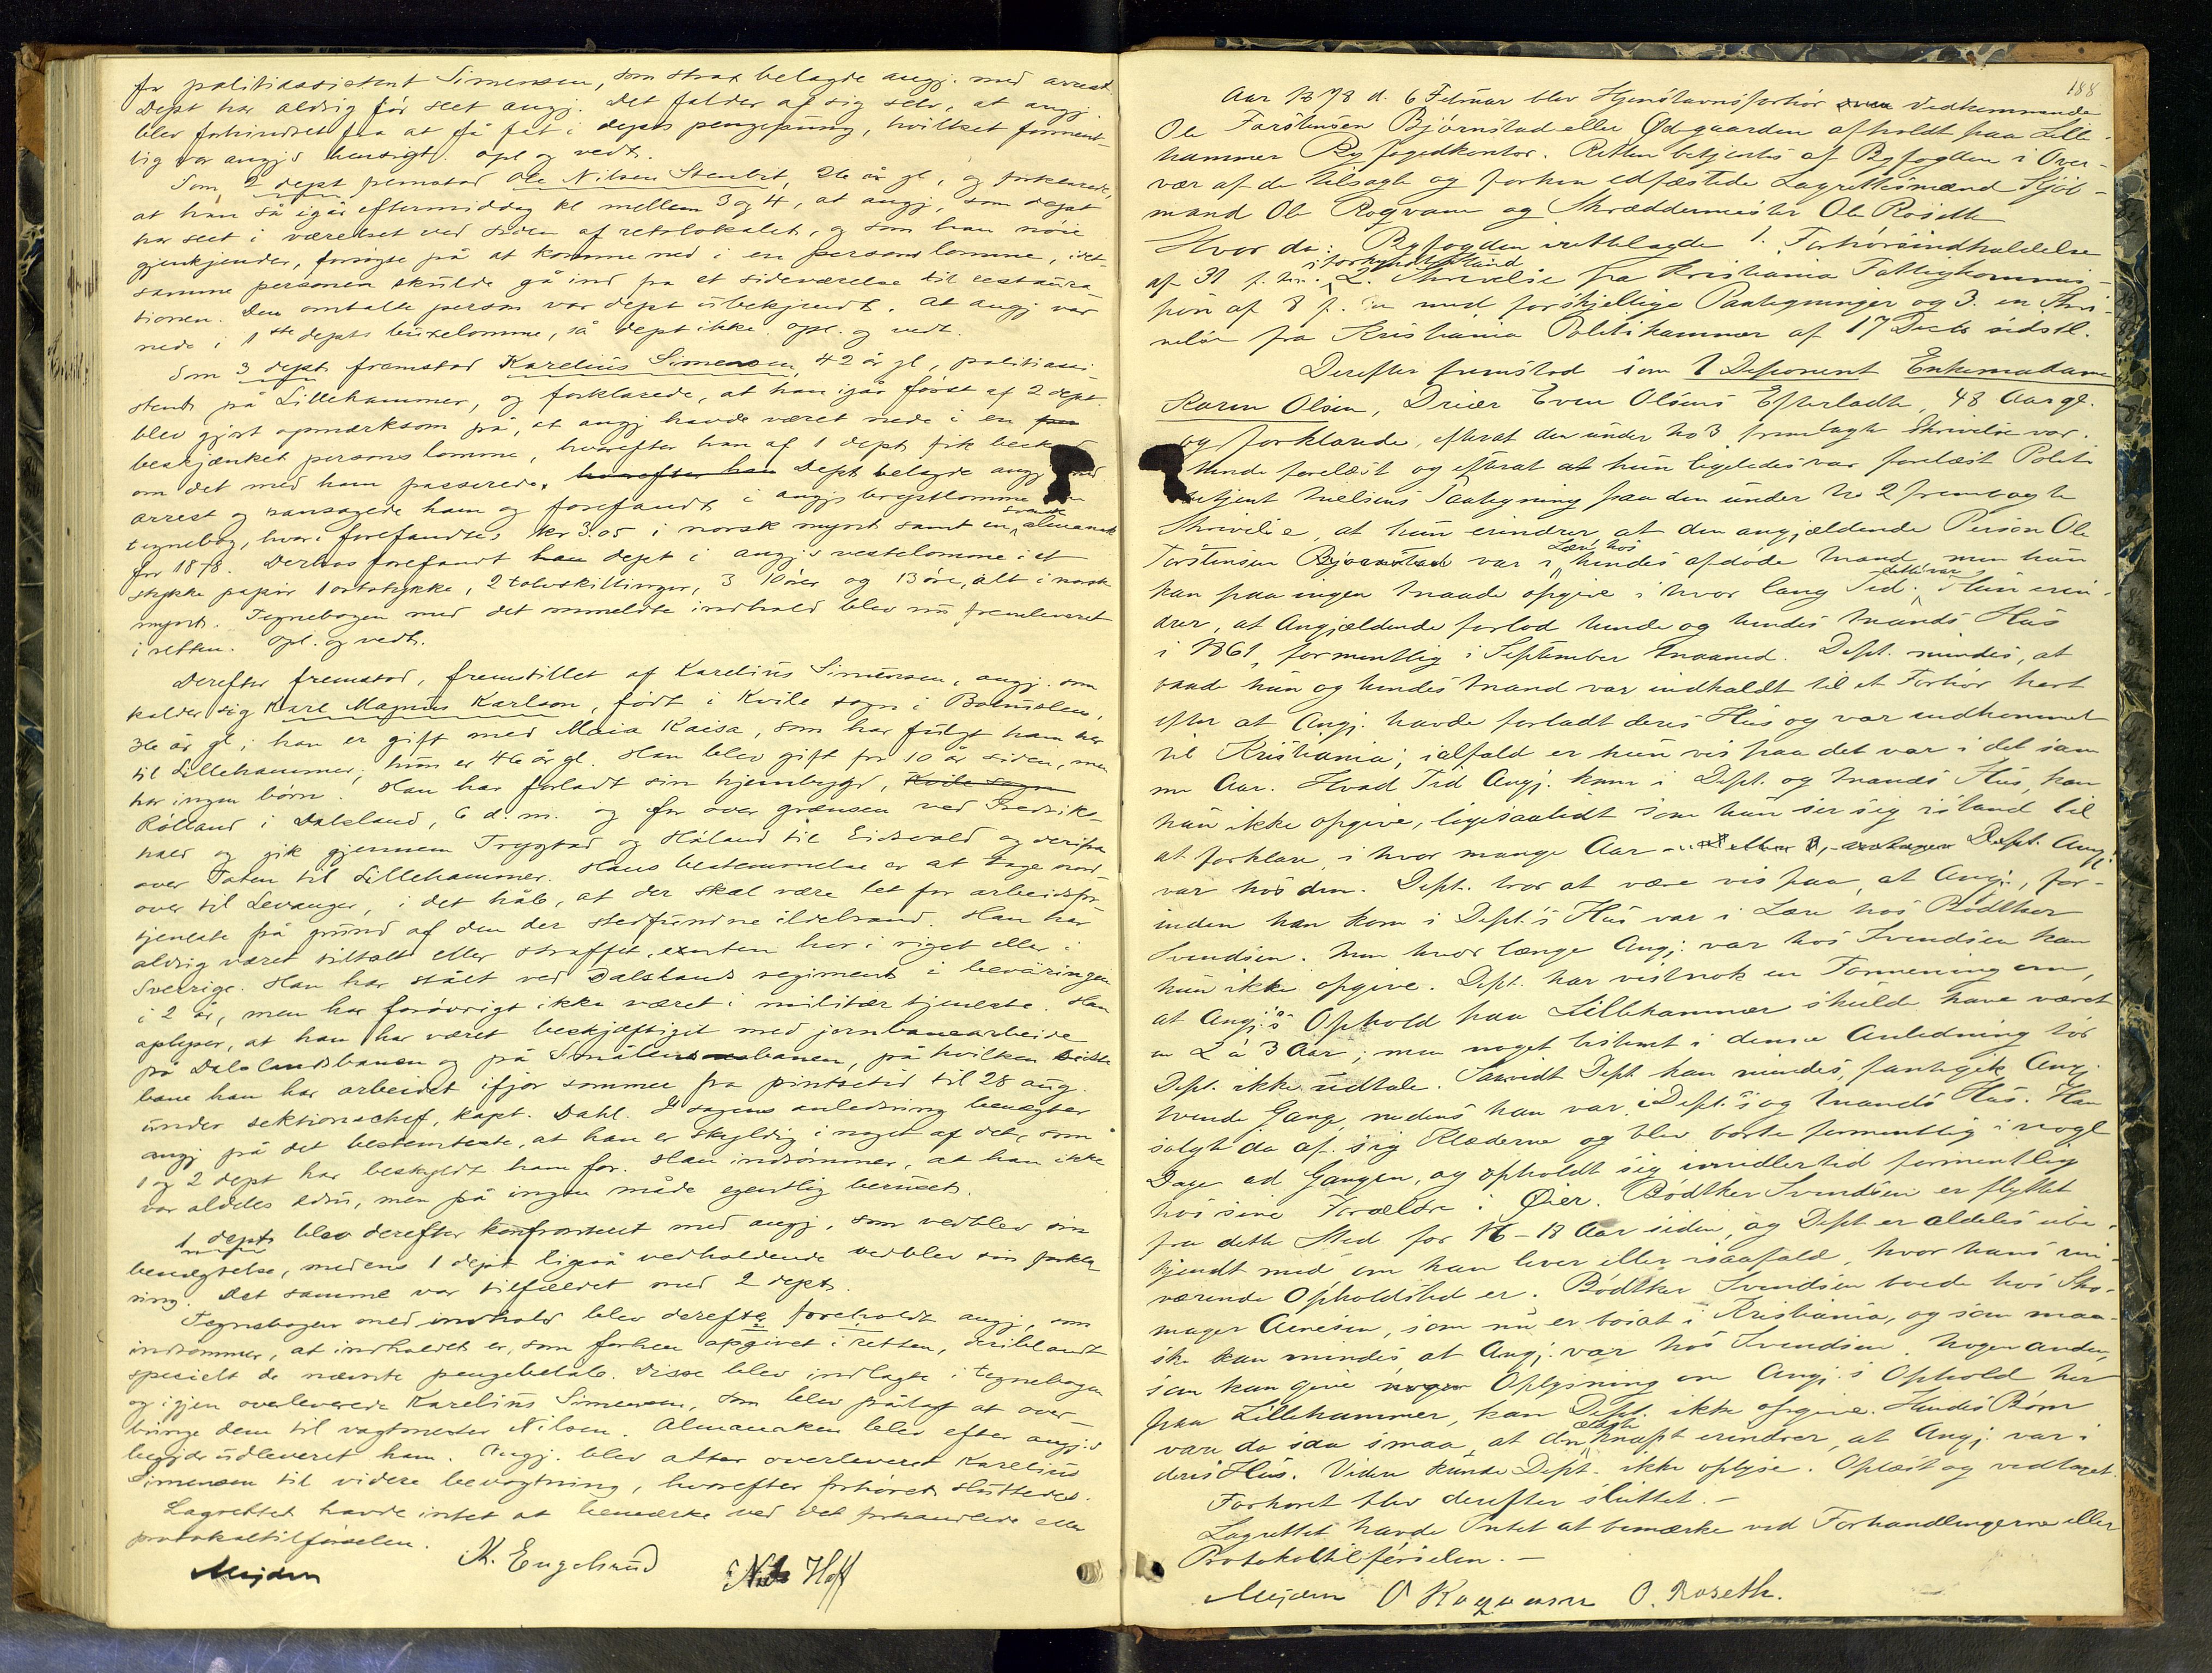 for politiassistent Simensen, som strax belagde angj. med arrest.
Dept har aldrig før seet angj. Det falder af sig selv, at angj.
blev forhindret fra at få fat i depts pengepung, hvilket forment-
lig var angjs hensigt. opl og vedt.
Som 2 dept fremstod Ole Nilsen Stenbet, 26 år gl, og forklarede,
at han så igår eftermiddag kl mellem 3 og 4, at angj, som dept
har seet i værelset ved siden af retslokalet, og som han nøie
gjenkjender, forsøgte på at komme ned i en persons lomme, idet
samme personen skulde gå ind fra et sideværelse til restaura-
tionen. Den omtalte person var dept ubekjendt. At angj var
nede i 1ste depts buxelomme, så dept ikke. opl. og vedt.
Som 3 dept fremstod Karelius Simensen, 42 år gl, politiassi-
stent på Lillehammer, og forklarede, at han igår først af 2 dept.
blev gjort opmærksom på, at angj havde været nede i en
beskjænket persons lomme, hvorefter han af 1 dept fik besked
om det med ham passerede. hvorefter han Dept belagde angj med
arrest og ransagede ham og forefandt i angjs brystlomme en
tegnebog, hvori forefandtes kr 3.05 i norsk mynt samt en svensk almanak
for 1878. Derhos forefandt han dept i angjs vestelomme i et
stykke papir 1 ortstykke, 2 tolvskillinger, 3 10ører og 13 øre, alt i norsk
mynt. Tegnebogen med det anmeldte indhold blev nu fremleveret
i retten. opl. og vedt.
Derefter fremstod, fremstillet af Karelius Simensen, angj. som
kalder sig Karl Magnus Karlson, født i Kville sogn i Bohuslen,
36 år gl; han er gift med Maia Kaisa, som har fulgt ham her
til Lillehammer; hun er 46 år gl. Han blev gift for 10 år siden, men
har ingen børn. Han har forladt sin hjembygd, Kville sogn
Rölland i Dalsland, 6 d. m. og for over grænsen ved Fredriks-
hald og gik gjennem Trygstad og Høland til Eidsvold og derifra
over Toten til Lillehammer. Hans bestemmelse er at tage nord-
over til Levanger, i det håb, at der skal være let for arbeidsfor-
tjeneste på grund af den der stedfundne ildebrand. Han har
aldrig været tiltalt eller straffet, enten her i riget eller i
Sverrige. Han har stået ved Dalslands regiment i beväringen
i 2 år, men har forøvrigt ikke været i militær tjeneste. Han
oplyser, at han har været beskjæftiget med jernbanearbeide
på Dalslandsbanen og på Smålensbanen, på hvilken sidste
bane han har arbeidet ifjor sommer fra pintsetid til 28 aug
under sektionschef, kapt. Dahl. I sagens anledning benegter
angj på det bestemteste, at han er skyldig i noget af det, som
1 og 2 dept har beskyldt ham for. Han indrømmer, at han ikke
var aldeles ædru, men på ingen måde egentlig beruset.
1 dept blev derefter konfronteret med angj, som vedblev sin
benegtelse, medens 1 dept ligeså vedholdende vedblev sin forkla-
ring. Det samme var tilfældet med 2 dept.
Tegnebogen med indhold blev derefter foreholdt angj, som
indrømmer, at indholdet er, som forhen opgivet i retten, deriblandt
specielt de nævnte pengebeløb. Disse blev indlagte i tegnebogen
og igjen overleverede Karelius Simensen, som blev pålagt at over-
bringe dem til vagtmester Nilsen. Almanaken blev efter angj.s
begjær udleveret ham. Angj. blev atter overleveret Karelius
Simensen til videre bevogtning, hvorefter forhøret sluttedes.
Lagrettet havde intet at bemærke ved det forhandlede eller
protokoltilførselen.
Mejdell K. Engelsrud Nils Hoff
188
Aar 1878 d. 6 Februar blev Hjemstavnsforhør vedkommende
Ole Torstensen Bjørnstad eller Ødegaarden afholdt paa Lille-
hammer Byfogedkontor. Retten betjentes af Byfogden i Over-
vær af de tilsagte og forhen edfæstede Lagrettesmænd Skjøt-
mand Ole Roqvam og Skræddermester Ole Roseth
Hvor da: Byfogden irettelagde 1. Forhørsindkaldelse
i forkyndt Stand
af 31 f. m. 2. Skrivelse fra Kristiania Fattigkommis-
sion af 8 f. m med forskjellige Paategninger og 3. en Skri-
velse fra Kristiania Politikammer af 17 Decbr sidstl.
Derefter fremstod som 1 Deponent Enkemadame
Karen Olsen, Driver Even Olsens Efterladte, 48 Aar gl.
og forklarede, efterat den under No 3 fremlagte Skrivelse var
hende forelæst og efterat at hun ligeledes var forelæst Politi
betjent Nielsens Paategning paa den under No 2 fremlagte
Skrivelse, at hun erindrer at den angjældende Person Ole
Torstensen Bjørnstad var i Lære hos hendes afdøde Mand, men hun
kan paa ingen Maade opgive i hvor lang Tid dette var. Hun erin-
drer, at Angjældende forlod hende og hendes Mands Hus
i 1861, formentlig i September Maaned. Dept. mindes, at
baade hun og hendes Mand var indkaldt til et Forhør kort
efter at Angj. havde forladt deres Hus og var indkommet
til Kristiania; ialfald er hun vis paa det var i det sam
me Aar. Hvad Tid Angj. kom i Dept. og Mands Hus, kan
hun ikke opgive, ligesaalidt som hun ser sig istand til
at forklare, i hvor mange Aar Dept. Angj.
var hos dem. Dept. tror at være vis paa, at Angj., for-
inden han kom i Dept.'s Hus var i Lære hos Bødtker
Svendsen. Men hvor længe Angj. var hos Svendsen kan
hun ikke opgive. Dept. har vistnok en Formening om,
at Angj.'s Ophold paa Lillehammer skulde have været
en 2 à 3 Aar; men noget bestemt i denne Anledning tør
Dept. ikke udtale. Saavidt Dept kan mindes, fantegik Angj.
tvende Gange, medens han var i Dept.'s og Mands Hus. Han
solgte da af sig Klæderne og blev borte formentlig i nogle
Dage ad Gangen, og opholdt sig imidlertid formentlig
hos sine Forældre i Øier. Bødtker Svendsen er flyttet
fra dette Sted for 16-18 Aar siden, og Dept er aldeles ube-
kjendt med om han lever eller isaafald, hvor hans nu-
værende Opholdsted er. Bødtker Svendsen boede hos Sko-
mager Arnesen, som nu er bosat i Kristiania, og som maa-
ske kan mindes, at Angj. var hos Svendsen. Nogen anden,
som kan give nogen Oplysning om Angj.'s Ophold her
paa Lillehammer, kan Dept. ikke opgive. Hendes Børn
vare da saa smaa, at den ældste knapt erindrer, at Angj. var i
deres Hus. Videre kunde Dept. ikke oplyse. Oplæst og vedtaget.
Forhøret blev derefter sluttet.-
Lagrettet havde Intet at bemærke ved Forhandlingerne eller
Protokoltilførselen.-
Mejdell O Roqvam O. Roseth.